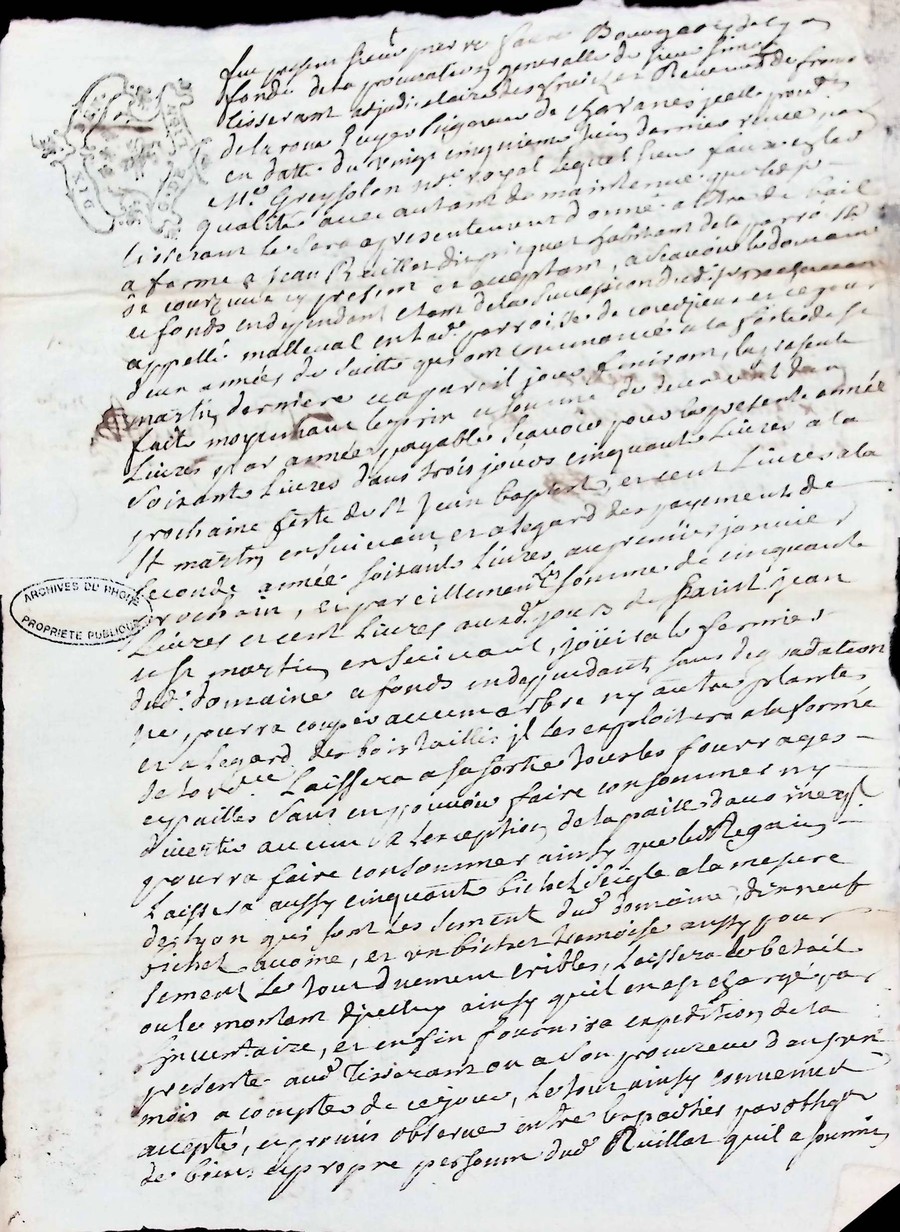 fut present sieur pierre faure Bourgeois de Lyon
fondé de la procuration generalle de sieur simon
tisserant adjudicataire des fruits et Revenus de
de la roux seigneur de Chavanes, jcelle proc.on
en datte du vingt cinquieme juin dernier receue par
M.e Greysolon n.re royal Lequel sieur faure es dites
qualités avec autant de maintenue que led.
tisserant le sera a presentement donné a titre de bail
a ferme a Jean Ruillat habitant de la parroisse
de courzieu cy present et acceptant, a scavoir le domaine
et fonds en dependant
appellé malleval en lad. parroisse de courzieu et ce pour
deux années de suitte qui ont commancé a la feste de st
martin derniere et a pareil jour finiront, la presente
faite moyennant le prix et somme de deux cent dix
Livres par année payable scavoir pour la presente année
soixante Livres dans trois jours cinquante Livres a la
prochaine feste de st Jean baptiste, et cent Livres a la
st martin ensuivant, et a legard des payements de
seconde année soixante Livres au premier janvier
prochain, et pareillement somme de cinquante
Livres et cent Livres aud. jours de saint jean
et st martin ensuivant, joüira le fermier
dud. domaine et fonds en dependant sans degradation
ne pourra couper aucun arbre ny autre plantes
et a legard des bois taillis jl les exploitera a la forme
de lord.ce Laissera a sa sortie tous les fourrages
et pailles sans en pouvoir faire consommer ny
divertir aucun a lexception de la paille davoine qjl
pourra faire consommer ainsy que les Regains
Laissera aussy cinquante bichet seigle a la mesure
de Lyon qui sont les sement dud. domaine, dix neuf
bichet avoine, et un bichet tremoise aussy pour
sement le tout duement cribles, Laissera le betail
ou le montant djceluy ainsy quil en est chargé par
jnventaire, et enfin fournira expedition de la
presente aud. tisserant ou a son procureur dans un
mois a compter de ce jour, Le tout ainsy convenu
accepté, et promis observer entre les parties par obligation
de biens et propre personne dud. Ruillat quil a soumis
ARCHIVES DU RHONE
PROPRIETE PUBLIQUE